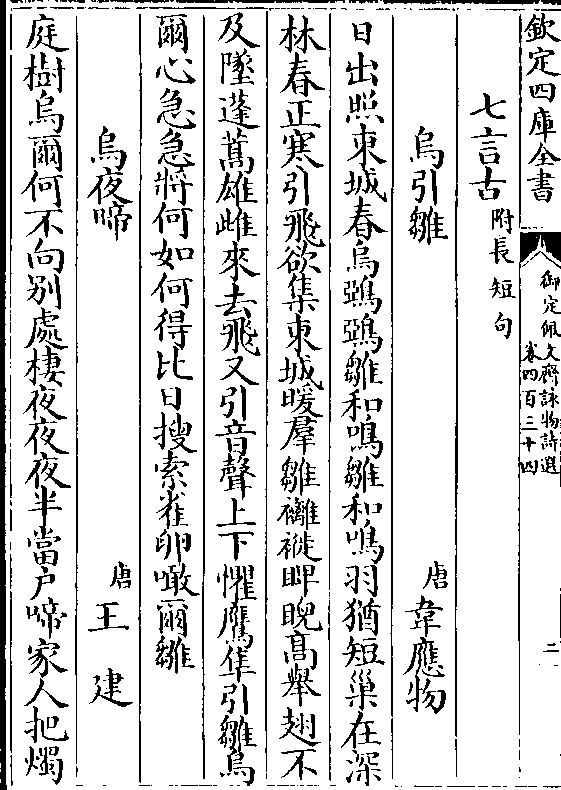 欽定四庫全書
御定佩文齋詠物詩選
卷四百三十四
二
七言古附長短句
烏引雛 唐韋應物
日出照東城春烏鵶鵶雛和鳴雛和鳴羽猶短巢在深
林春正寒引飛欲集東城暖羣雛襹褷睥睨高舉翅不
及墜蓬蒿雄雌來去飛又引音聲上下懼鷹隼引雛烏
爾心急急將何如何得比日搜索雀卵噉爾雛
烏夜啼 唐王建
庭樹烏爾何不向别處棲夜夜夜半當户啼家人把燭